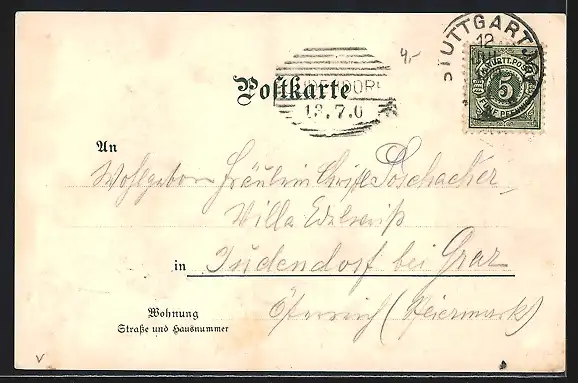 4.-
STUTTGART
12
K. WÜRTT. POST
5
FÜNF PFENNIG
Postkarte
13.7.0
An
Wohlgeboren Fräulein Poschacher
Villa Edelweiß
in Judendorf bei Graz
Österreich (Steiermark)
Wohnung
Straße und Hausnummer
v